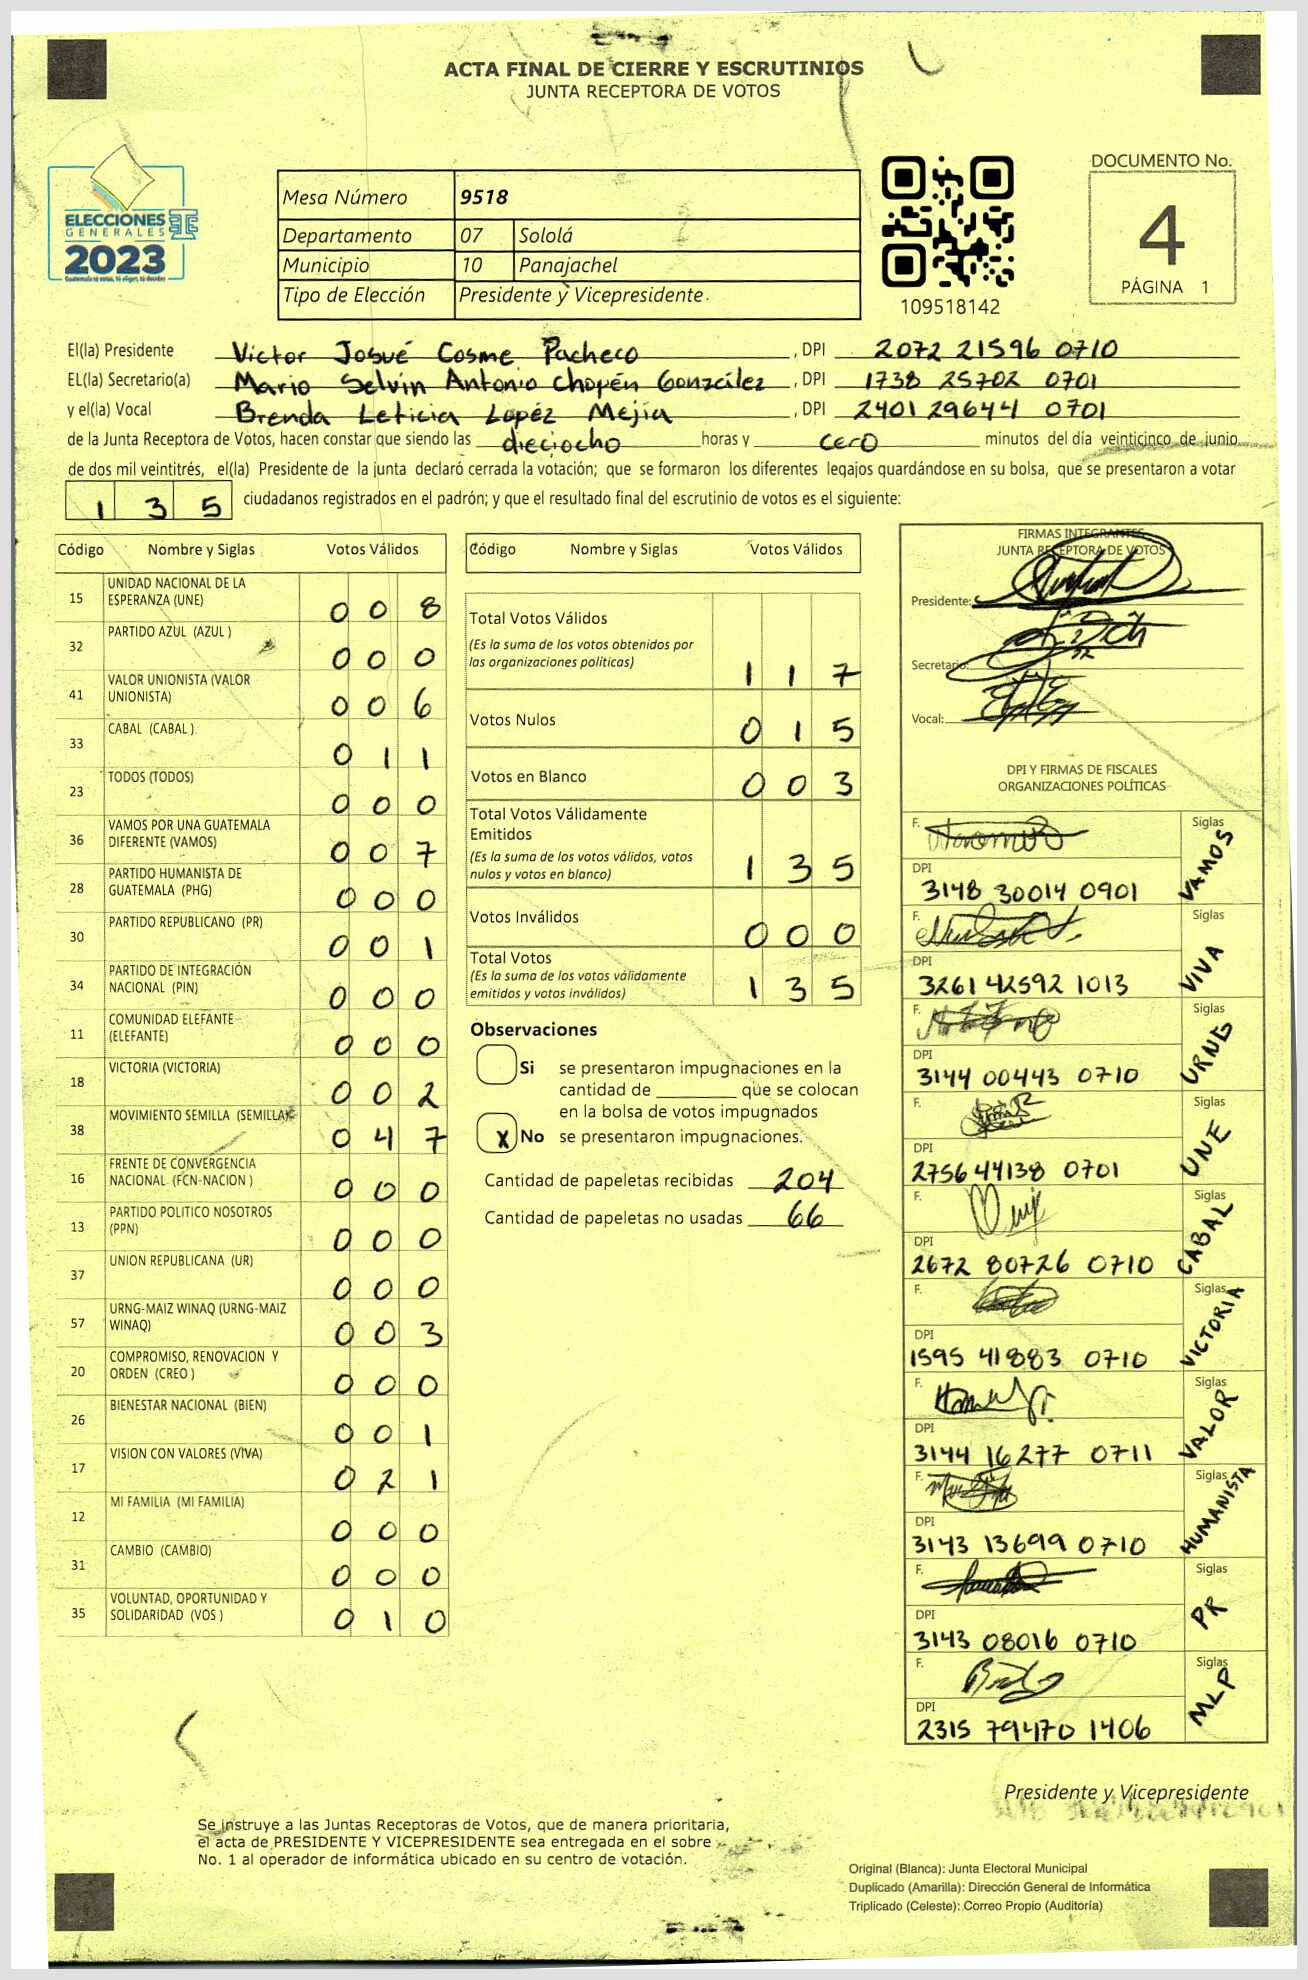 ACTA FINAL DE CIERRE Y ESCRUTINIOS
JUNTA RECEPTORA DE VOTOS
ELECCIONES
GENERALES
2023
Guatemala tú votas, tú eliges, tú decides
Mesa Número 9518
Departamento 07 Sololá
Municipio 10 Panajachel
Tipo de Elección Presidente y Vicepresidente
109518142
DOCUMENTO No.
4
PÁGINA 1
El(la) Presidente Victor Josué Cosme Pacheco , DPI 2072 21596 0710
EL(la) Secretario(a) Mario Selvin Antonio Chopén González , DPI 1738 25702 0701
y el(la) Vocal Brenda Leticia Lopéz Mejía , DPI 2401 29644 0701
de la Junta Receptora de Votos, hacen constar que siendo las dieciocho horas y cero minutos del día veinticinco de junio
de dos mil veintitrés, el(la) Presidente de la junta declaró cerrada la votación; que se formaron los diferentes legajos guardándose en su bolsa, que se presentaron a votar
135 ciudadanos registrados en el padrón; y que el resultado final del escrutinio de votos es el siguiente:
Código Nombre y Siglas Votos Válidos
15 UNIDAD NACIONAL DE LA ESPERANZA (UNE) 008
32 PARTIDO AZUL (AZUL ) 000
41 VALOR UNIONISTA (VALOR UNIONISTA) 006
33 CABAL (CABAL ) 011
23 TODOS (TODOS) 000
36 VAMOS POR UNA GUATEMALA DIFERENTE (VAMOS) 007
28 PARTIDO HUMANISTA DE GUATEMALA (PHG) 000
30 PARTIDO REPUBLICANO (PR) 001
34 PARTIDO DE INTEGRACIÓN NACIONAL (PIN) 000
11 COMUNIDAD ELEFANTE (ELEFANTE) 000
18 VICTORIA (VICTORIA) 002
38 MOVIMIENTO SEMILLA (SEMILLA) 047
16 FRENTE DE CONVERGENCIA NACIONAL (FCN-NACION ) 000
13 PARTIDO POLITICO NOSOTROS (PPN) 000
37 UNION REPUBLICANA (UR) 000
57 URNG-MAIZ WINAQ (URNG-MAIZ WINAQ) 003
20 COMPROMISO, RENOVACION Y ORDEN (CREO ) 000
26 BIENESTAR NACIONAL (BIEN) 001
17 VISION CON VALORES (VIVA) 021
12 MI FAMILIA (MI FAMILIA) 000
31 CAMBIO (CAMBIO) 000
35 VOLUNTAD, OPORTUNIDAD Y SOLIDARIDAD (VOS ) 010
Código Nombre y Siglas Votos Válidos
Total Votos Válidos 117
(Es la suma de los votos obtenidos por
las organizaciones políticas)
Votos Nulos 015
Votos en Blanco 003
Total Votos Válidamente
Emitidos 135
(Es la suma de los votos válidos, votos
nulos y votos en blanco)
Votos Inválidos 000
Total Votos 135
(Es la suma de los votos válidamente
emitidos y votos inválidos)
Observaciones
Si se presentaron impugnaciones en la
cantidad de ________ que se colocan
en la bolsa de votos impugnados
X No se presentaron impugnaciones.
Cantidad de papeletas recibidas 204
Cantidad de papeletas no usadas 66
FIRMAS INTEGRANTES
JUNTA RECEPTORA DE VOTOS
Presidente:
Secretario:
Vocal:
DPI Y FIRMAS DE FISCALES
ORGANIZACIONES POLÍTICAS
F. Siglas VAMOS
DPI
3148 30014 0901
F. Siglas VIVA
DPI
3261 42592 1013
F. Siglas URNG
DPI
3144 00443 0710
F. Siglas UNE
DPI
2756 44138 0701
F. Siglas CABAL
DPI
2672 80726 0710
F. Siglas VICTORIA
DPI
1595 41883 0710
F. Siglas VALOR
DPI
3144 16277 0711
F. Siglas HUMANISTA
DPI
3143 13699 0710
F. Siglas PR
DPI
3143 08016 0710
F. Siglas MLP
DPI
2315 79470 1406
Presidente y Vicepresidente
Se instruye a las Juntas Receptoras de Votos, que de manera prioritaria,
el acta de PRESIDENTE Y VICEPRESIDENTE sea entregada en el sobre
No. 1 al operador de informática ubicado en su centro de votación.
Original (Blanca): Junta Electoral Municipal
Duplicado (Amarilla): Dirección General de Informática
Triplicado (Celeste): Correo Propio (Auditoría)